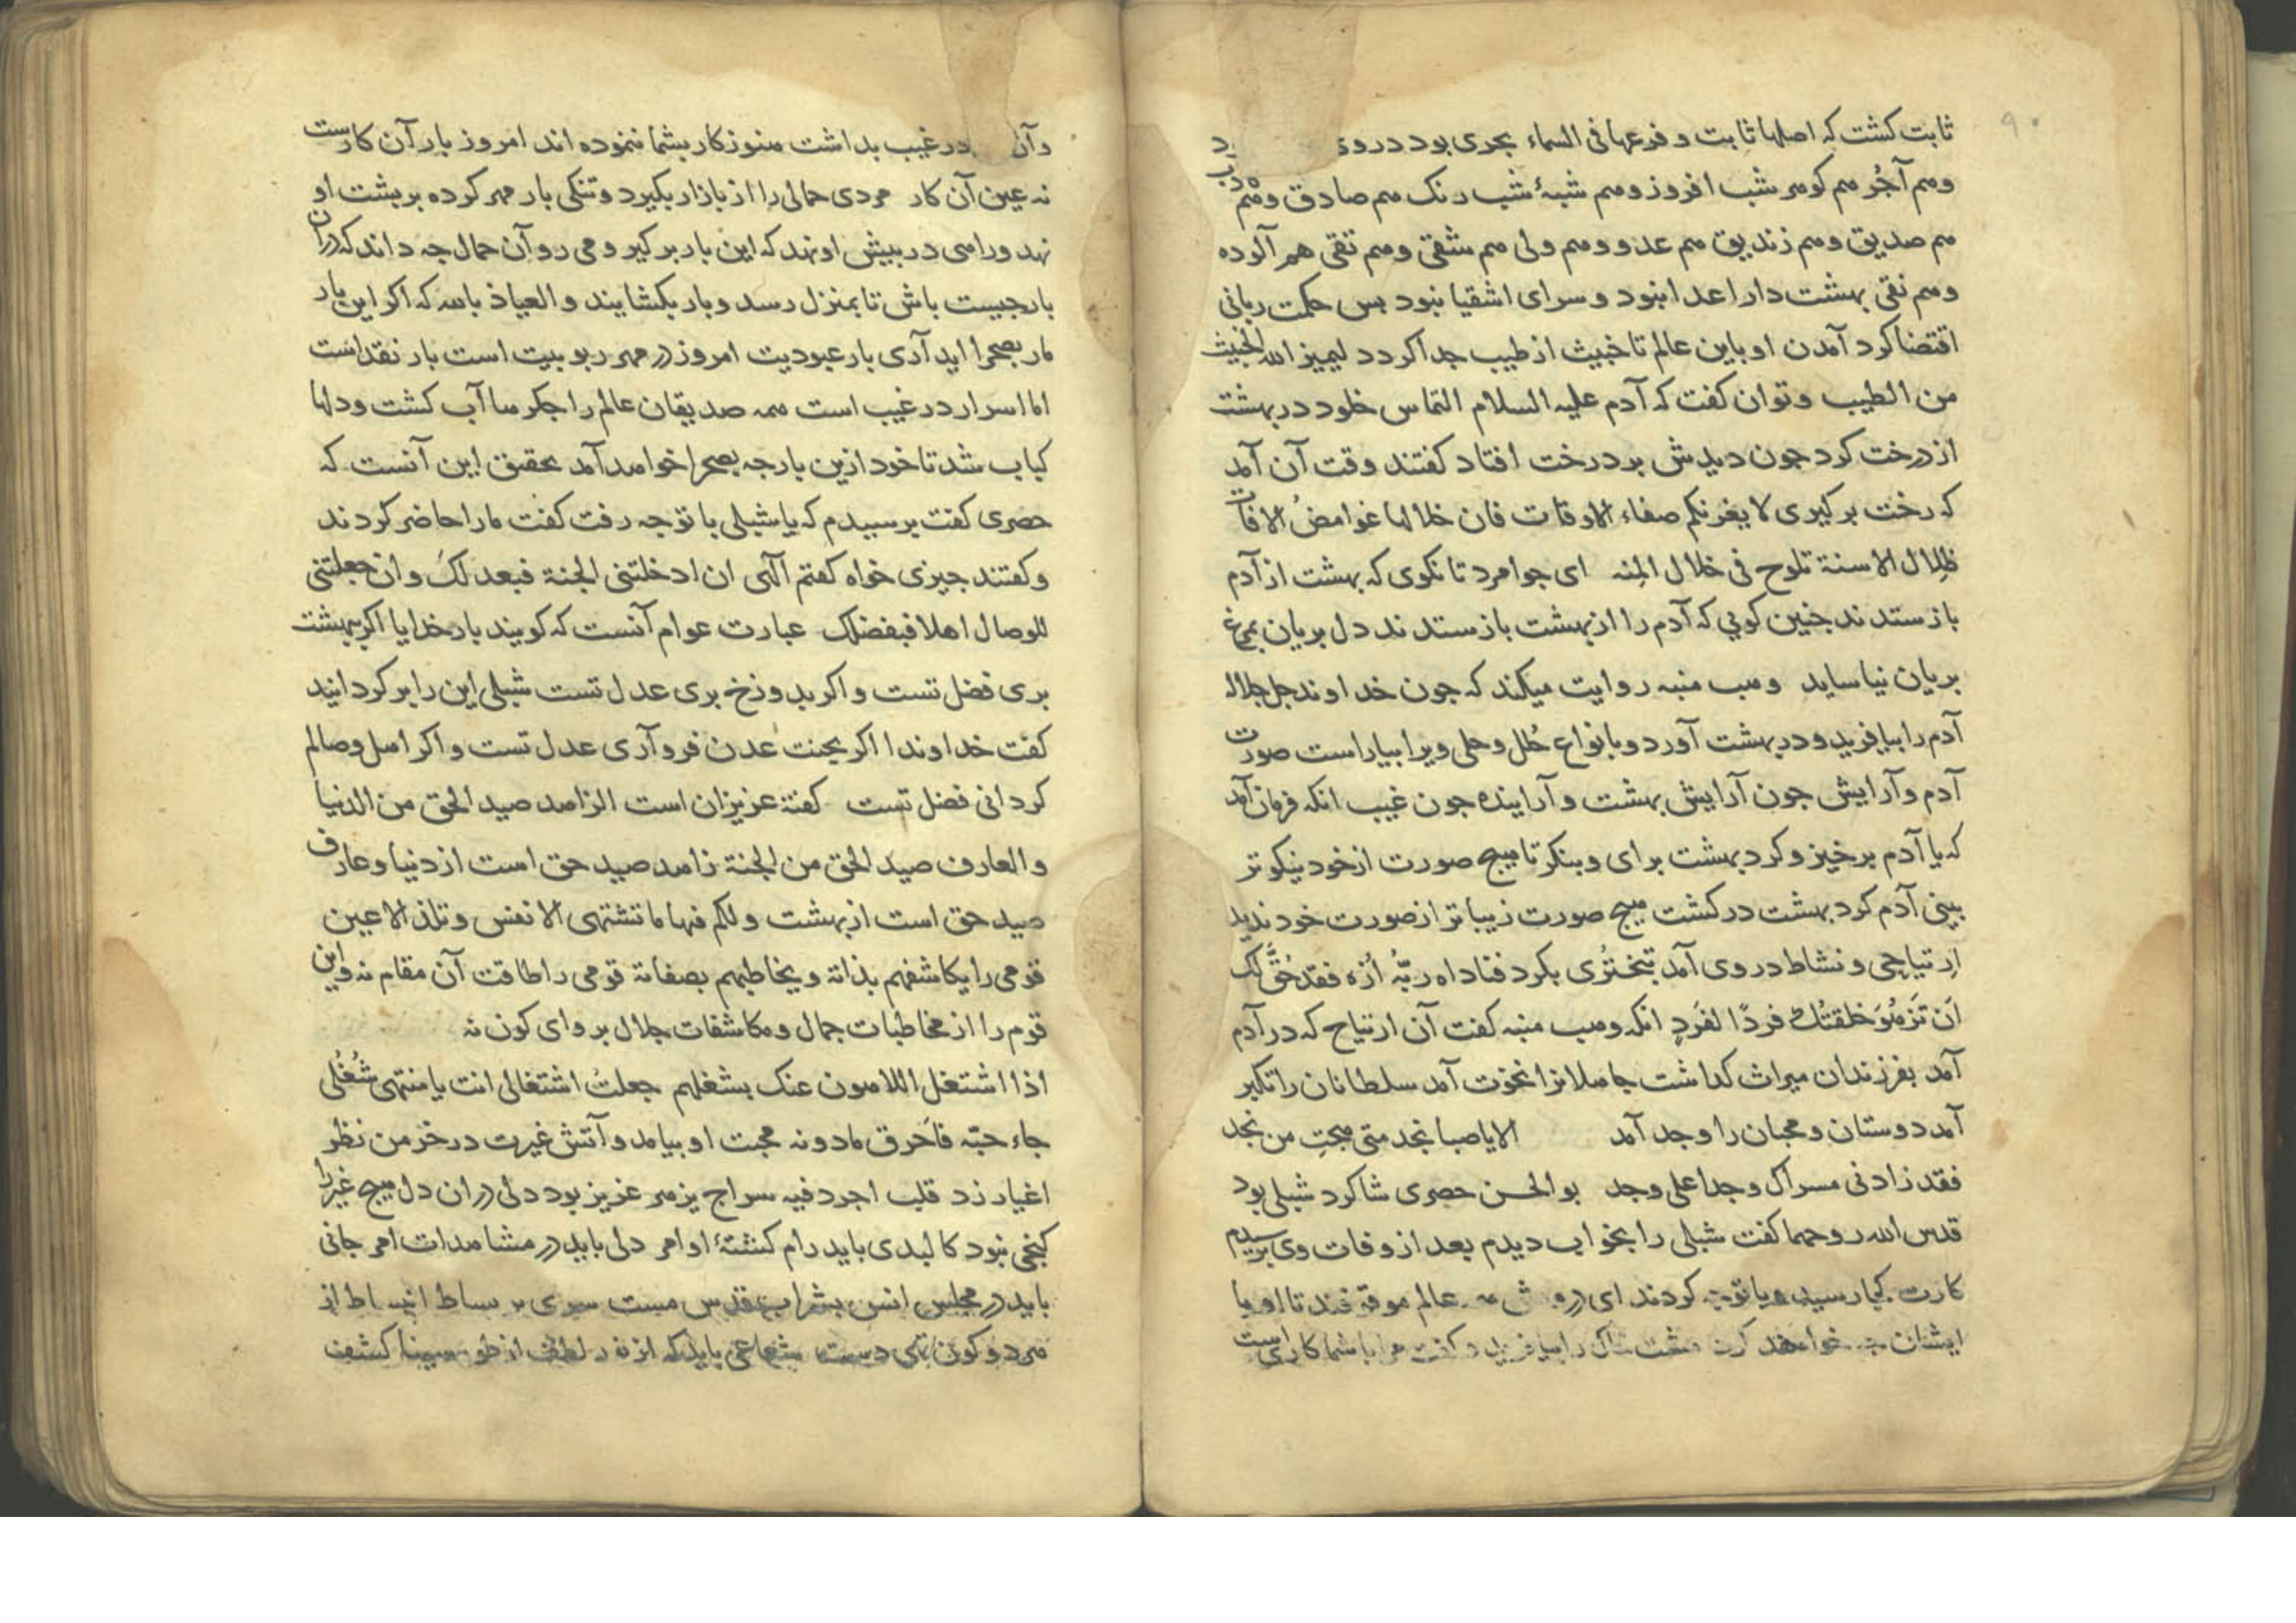 ۹۰
ثابت كشت كه اصلها ثابت و فرعها فى السماء بحرى بود در وى
وهم آجُر هم كوهر شب افروز وهم شبهٔ شب رنک هم صادق وهم
هم صديق وهم زنديق هم عدو وهم ولى هم شقى وهم تقى هم آلوده
وهم نقى بهشت دار اعدا نبود و سراى اشقيا نبود بس حكمت ربانى
اقتضا كرد آمدن او باين عالم تا خبيث از طيب جدا كردد ليميز الله الخبيث
من الطيب و توان كفت كه آدم عليه السلام التماس خلود در بهشت
از درخت كرد جون ديدش بر درخت افتاد كفتند وقت آن آمد
كه رخت بركيرى لا يغرنكم صفاء الاوقات فان خلالها غوامضُ الافات
ظِلال الاسنة تلوح فى خلال المِنه اى جوامرد تا نكوى كه بهشت از آدم
باز ستدند جنين كويى كه آدم را از بهشت باز ستدند دل بريان بمرغ
بريان نياسايد وهب منبه روايت ميكند كه جون خداوند جل جلاله
آدم را بيافريد و در بهشت آورد و بانواع حُلل و حلى ويرا بياراست صورت
آدم و آرايش جون آرايش بهشت و آراينده جون غيب انكه فرمان آمد
كه يا آدم برخيز و كرد بهشت براى و بنكر تا هيج صورت از خود نيكوتر
بينى آدم كرد بهشت در كشت هيج صورت زيباتر از صورت خود نديد
اِرتياحِى و نشاط در وى آمد تبخترُى بكرد فناداه ربّهُ اُزه فقد حُقَّ لک
اَن تَزهُوَ خلقتُك فردًا لفَردٍ انكه وهب منبه كفت آن ارتياح كه در آدم
آمد بفرزندان ميراث كذاشت جاهلانرا نخوت آمد سلطانان را تكبر
آمد دوستان و محبان را وجد آمد الا يا صبا نجد متى هجتِ من نجد
فقد زادنى مسراک وجدا على وجد بو الحسن حصرى شاكرد شبلى بود
قدس الله روحهما كفت شبلى را بخواب ديدم بعد از وفات وى برسيدم
كارت كجا رسيد و با تو جه كردند اى درويش همه عالم موقوفند تا او با
ايشان جه خواهد كرد مشت خاک را بيافريد و كفت مرا با شما كارى است
وآن در غيب بداشت هنوز كار بشما ننموده اند امروز بار آن كارست
نه عين آن كار مردى حمالى را از بازار بكيرد و تنكى بار مهر كرده بر بشت او
نهد و راهى در بيش او نهد كه اين بار بركير و مى رو آن حمال جه داند كه در ان
بار جيست باش تا بمنزل رسد و بار بكشايند و العياذ بالله كه اكر اين بار
مار بصحرا ايد آرى بار عبوديت امروز در مهر ربوبيت است بار نقد است
اما اسرار در غيب است همه صديقان عالم را جكرها آب كشت و دلها
كباب شد تا خود ازين بار جه بصحرا خواهد آمد تحقيق اين آنست كه
حصرى كفت برسيدم كه يا شبلى با تو جه رفت كفت مارا حاضر كردند
و كفتند جيزى خواه كفتم آلهى ان ادخلتنى الجنة فبعدلكَ و ان جعلتنى
للوصال اهلا فبفضلک عبارت عوام آنست كه كويند بار خدايا اكر ببهشت
برى فضل تست و اكر بدوزخ برى عدل تست شبلى اين را بركردانيد
كفت خداوندا اكر بجنت عدن فرو آرى عدل تست و اكر اهل وصالم
كردانى فضل تست كفتهٔ عزيزان است الزاهد صيد الحق من الدنيا
و العارف صيد الحق من الجنة زاهد صيد حق است از دنيا و عارف
صيد حق است از بهشت و لكم فيها ما تشتهى الانفس و تلذ الاعين
قومى را يكاشفهم بذاته و يخاطبهم بصفاته قومى را طاقت آن مقام نه و اين
قوم را از مخاطبات جمال و مكاشفات جلال برواى كون نه
اذا اشتغل اللاهون عنک بشغلهم جعلتُ اشتغالى انت يا منتهى شُغُلى
جاء حبّه فاَحرق مادونه محبت او بيامد و آتش غيرت در خرمن نظر
اغيار زد قلب اجرد فيه سراج يزهر عزيز بود دلى در ان دل هيج غير را
كنجى نبود كالبدى بايد رام كشتهٔ اوامر دلى بايد در مشاهدات امر جانى
بايد در مجلس انس بشراب قدس مست سرى بر بساط انبساط از
هر دو كون تهى دست شعاعى بايد كه از نور لطف از طور سينا كشف